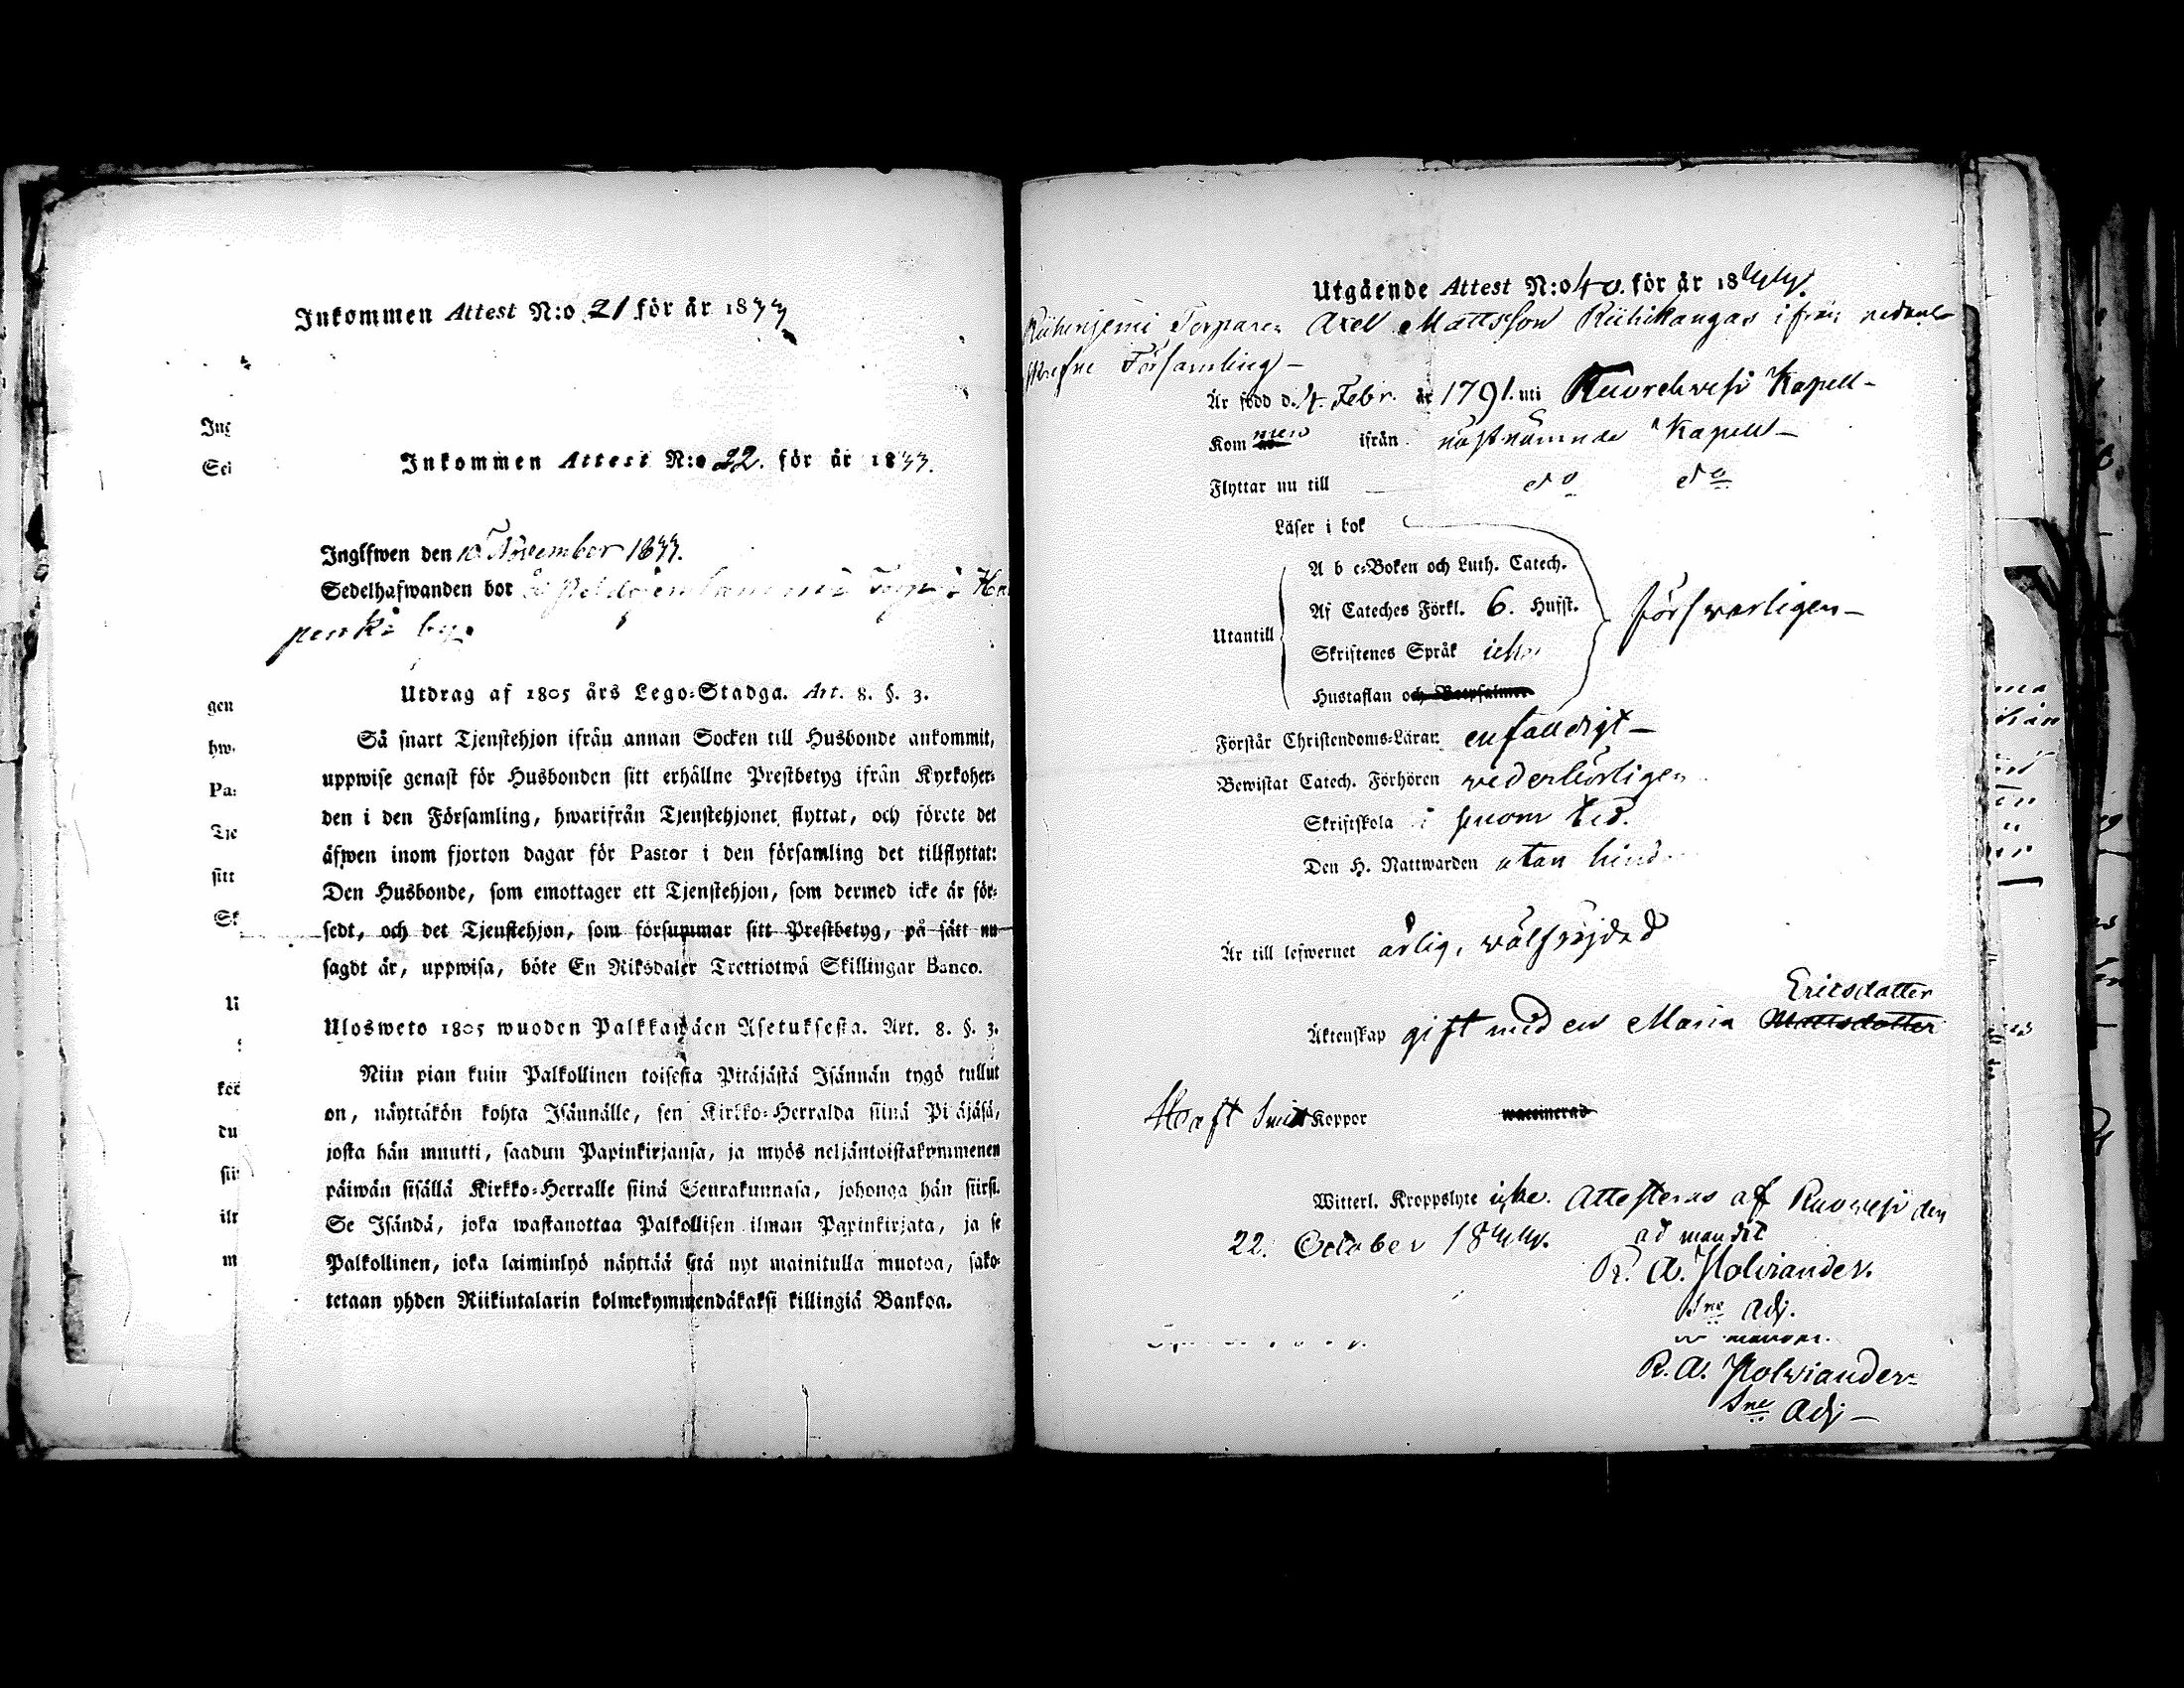 Inkommen Attest N:o 21 för år 1833
Ing
Sei
Inkommen Attest N:o 22. för år 1833.
Inglfwen den 10 November 1833.
Sedelhafwanden bor
penki by.
Utdrag af 1805 års Lego-Stadga. Art. 8. §. 3.
Så snart Tjenstehjon ifrån annan Socken till Husbonde ankommit,
uppwise genast för Husbonden sitt erhållne Prestbetyg ifrån Kyrkoher-
den i den Församling, hwarifrån Tjenstehjonet flyttat, och förete det
äfwen inom fjorton dagar för Pastor i den församling det tillflyttat:
Den Husbonde, som emottager ett Tjenstehjon, som dermed icke är för-
sedt, och det Tjenstehjon, som försummar sitt Prestbetyg, på sätt nu
sagdt är, uppwisa, böte En Riksdaler Trettiotwå Skillingar Banco.
Ulosweto 1805 wuoden Palkkawäen Asetuksesta. Art. 8. §. 3.
Niin pian kuin Palkollinen toisesta Pitäjästä Isännän tygö tullut
on, näyttäkön kohta Isännälle, sen Kirkko-Herralda siinä Pitäjäsä,
josta hän muutti, saadun Papinkirjansa, ja myös neljäntoistakymmenen
päiwän sisällä Kirkko-Herralle siinä Seurakunnasa, johonga hän siirsi.
Se Isändä, joka wastanottaa Palkollisen ilman Papinkirjata, ja se
Palkollinen, joka laiminlyö näyttää sitä nyt mainitulla muotoa, sako-
tetaan yhden Riikintalarin kolmekymmendäkaksi killingiä Bankoa.
gen
hw.
Pa:
Tje
sitt
Sk
koe
du
sii
ilr
m
Utgående Attest N:o 40. för år 1844.
Torparen Axel Mattsson Riihikangas ifrån nedanb
skrefne Församling –
Är född d. 4. Febr. år 1791. uti Ruovehvesi Kapell –
Kommen ifrån näst nämnde Kapell –
Flyttar nu till do do
Läser i bok
A b c-Boken och Luth. Catech.
Af Cateches Förkl. 6. Hufst.
Utantill
försvarligen –
Skriftenes Språk icke
Hustaflan och Botpsalmer
Förstår Christendoms-Läran enfaldigt –
Bewistat Catech. Förhören vederbörligen
Skriftskola i sinom tid.
Den H. Nattwarden utan hinder
Är till lefwernet ärlig, wälfrejdad
Ericsdotter
Äktenskap gift med en Maria Mattsdotter
Haft Smitt Koppor waccinerad
Witterl. Kroppslyte icke. Attesteras af Ruovesi den
22. October 1844. ad mandit
R. A. Holviander.
Sne Adj.
R. A. Holviander
Sne Adj –